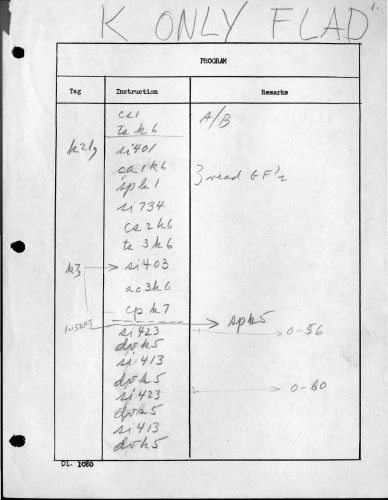 K ONLY FLAD 1.
PROGRAM
Tag Instruction Remarks
cs1 A/B
ts k6
k21, si401
ca1k6 } read GF's
spk1
si734
cs2k6
ts 3k6
k3, si403
ao3k6
cpk7
INSERT spk5
si423 0-56
dvk5
si413
dvk5
si423 0-60
dvk5
si413
dvk5
DL 1080